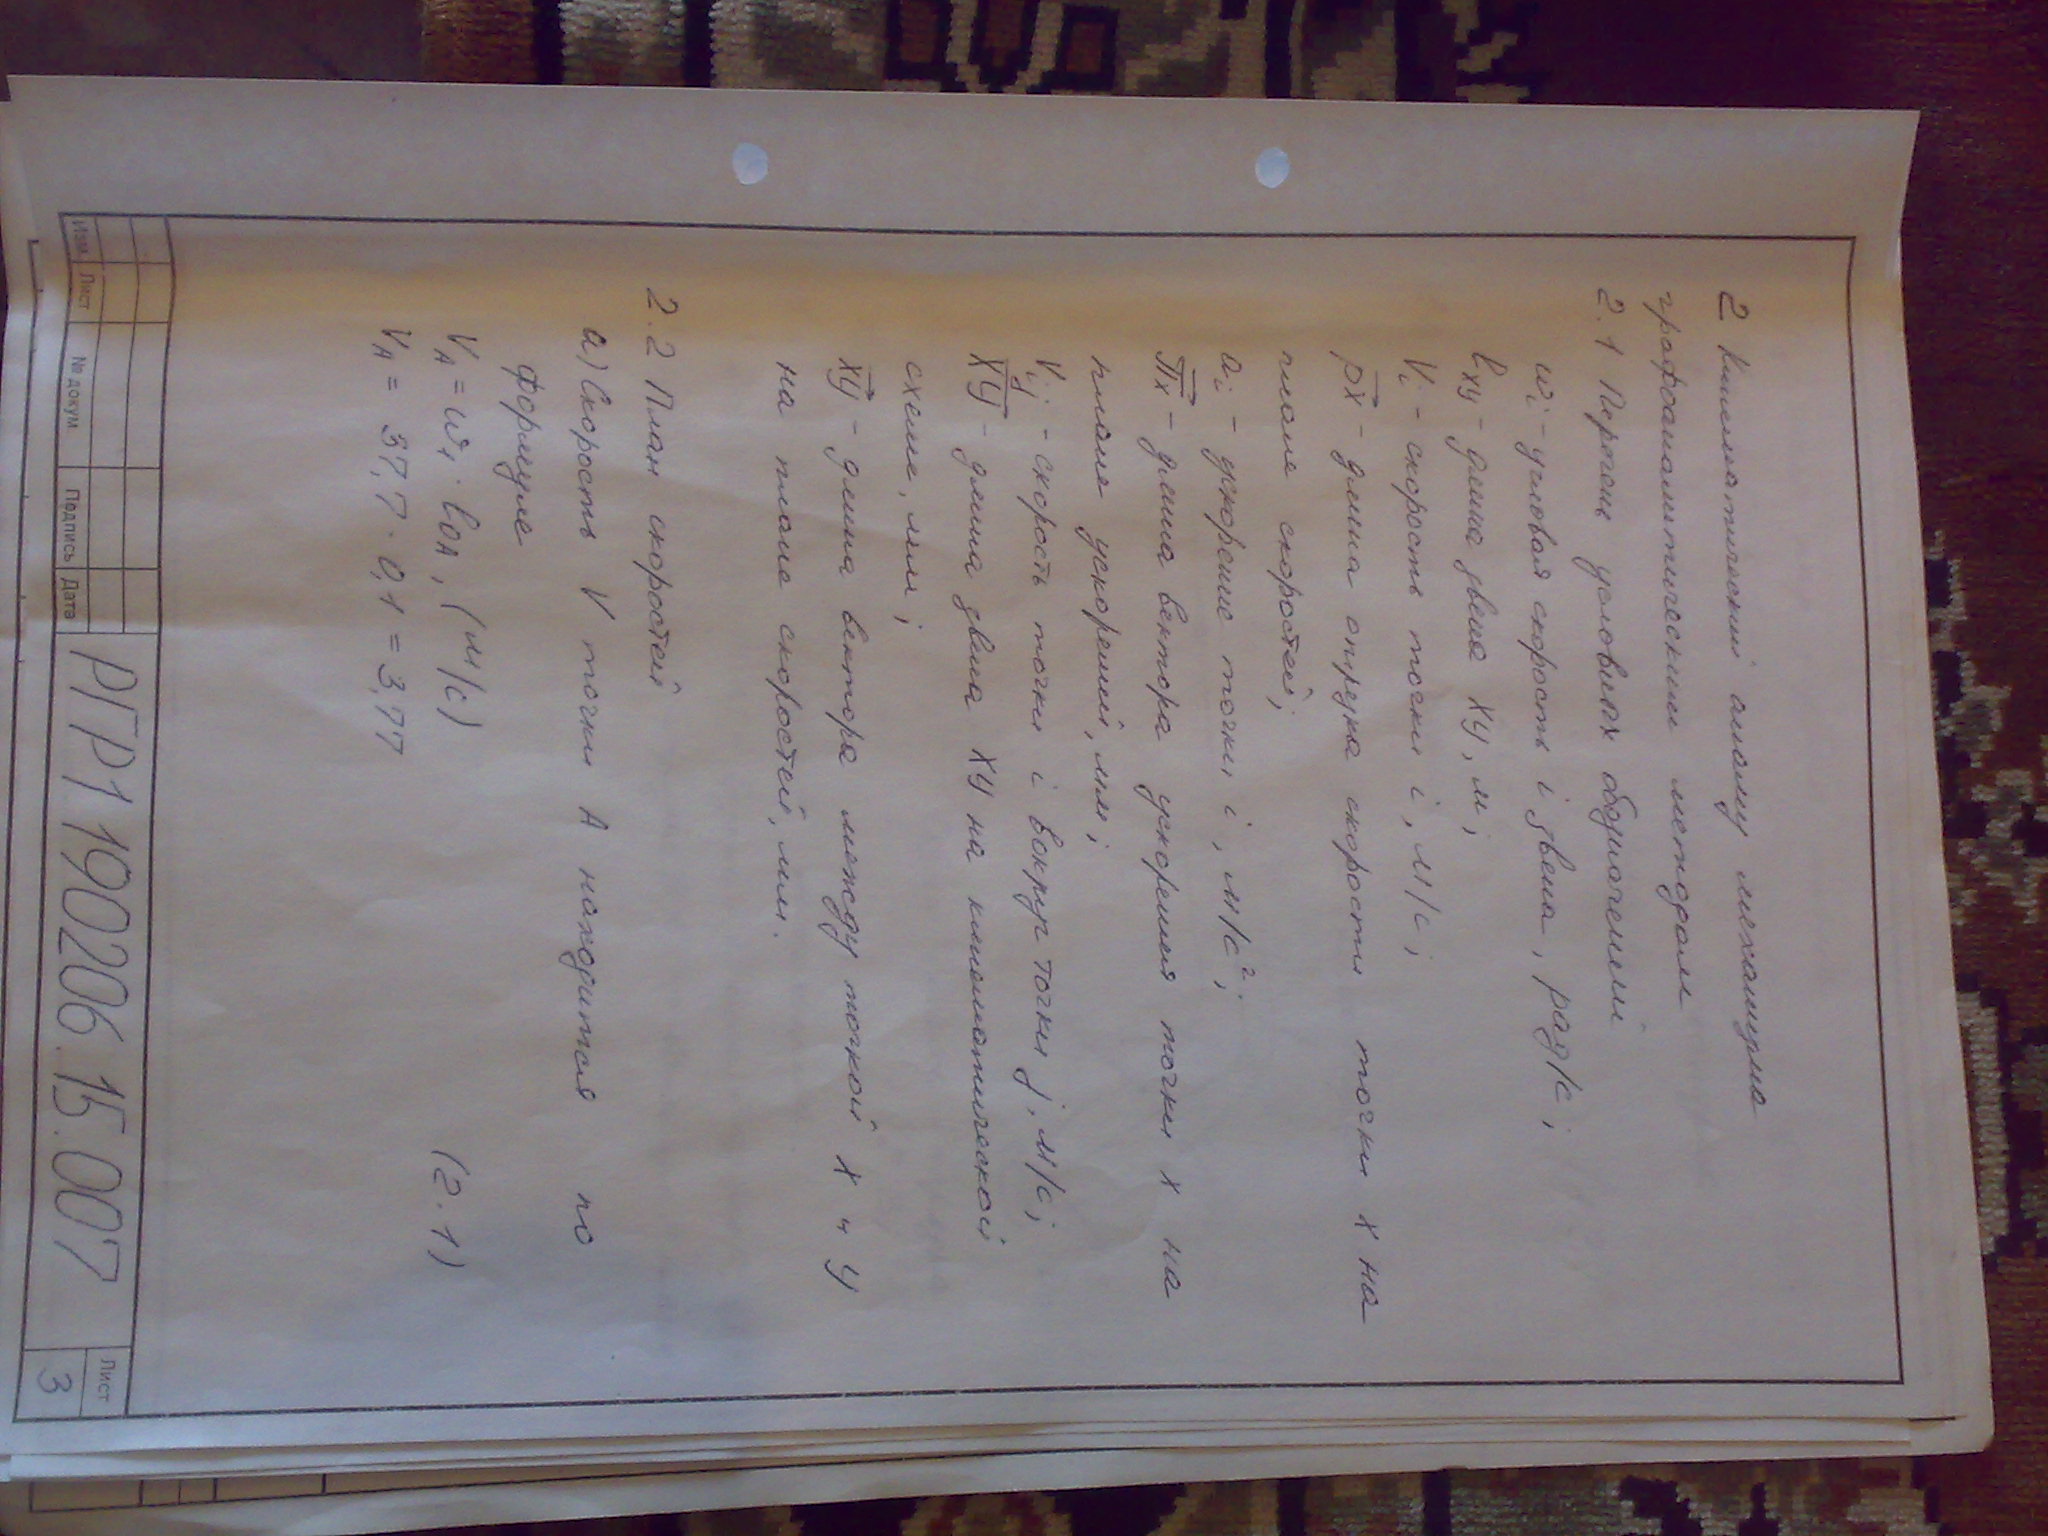 2 Кинематический анализ механизма
графоаналитическим методом
2.1 Перечень условных обозначений
ωi - угловая скорость i звена, рад/с;
lxy - длина звена ХУ, м;
Vi - скорость точки i, м/с;
рх - длина отрезка скорости точки х на
плане скоростей;
ai - ускорение точки i, м/с²;
Пх - длина вектора ускорения точки х на
плане ускорений, мм;
Vij - скорость точки i вокруг точки j, м/с;
ХУ - длина звена ХУ на кинематической
схеме, мм;
ху - длина вектора между точкой х и у
на плане скоростей, мм.
2.2 План скоростей
а) Скорость V точки А находится по
формуле
VA = ω1 · lOA, (м/с) (2.1)
VA = 37,7 · 0,1 = 3,77
Изм Лист № докум Подпись Дата
РГР1 190206.15.007
Лист
3